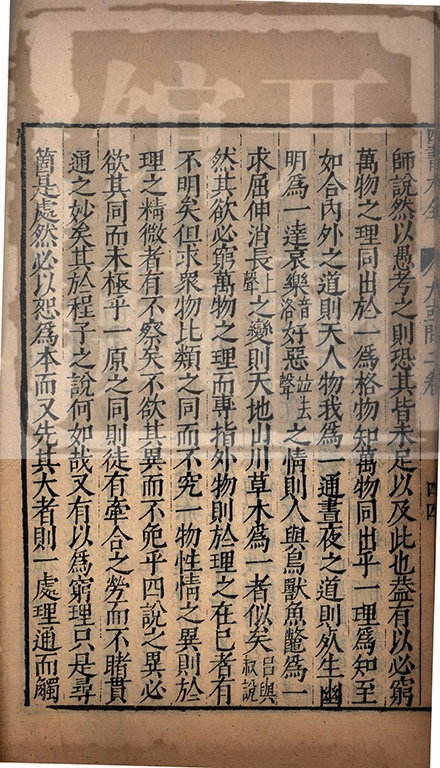 四書大全
師說然以愚考之則恐其皆未足以及此也葢有以必窮
萬物之理同出於一爲格物知萬物同出乎一理爲知至
如合內外之道則天人物我爲一通晝夜之道則死生幽
明爲一達哀樂音洛好惡竝去聲之情則人與鳥獸魚鼈爲一
求屈伸消長上聲之變則天地山川草木爲一者似矣呂與叔說
然其欲必窮萬物之理而專指外物則於理之在已者有
不明矣但求衆物比類之同而不究一物性情之異則於
理之精微者有不察矣不欲其異而不免乎四說之異必
欲其同而未極乎一原之同則徒有牽合之勞而不睹貫
通之妙矣其於程子之說何如哉又有以爲窮理只是尋
箇是處然必以恕爲本而又先其大者則一處理通而觸